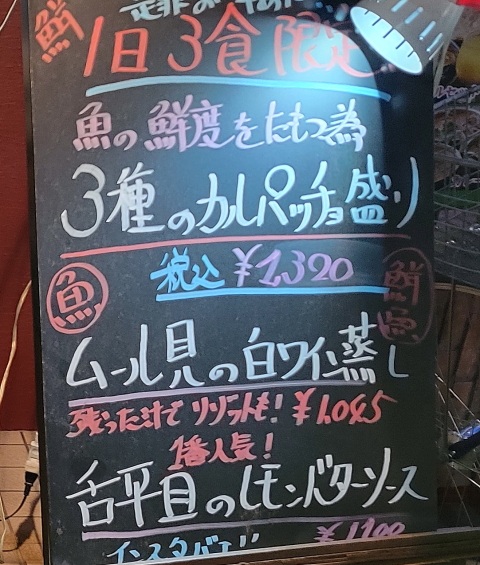 鮮
1日3食限定
魚の鮮度をたもつ為
3種のカルパッチョ盛り
税込 ¥1,320
魚
鮮魚
ムール見の白ワイン蒸し
残った汁でリゾットも! ¥1,045
1番人気!
舌平目のレモンバターソース
¥1,100